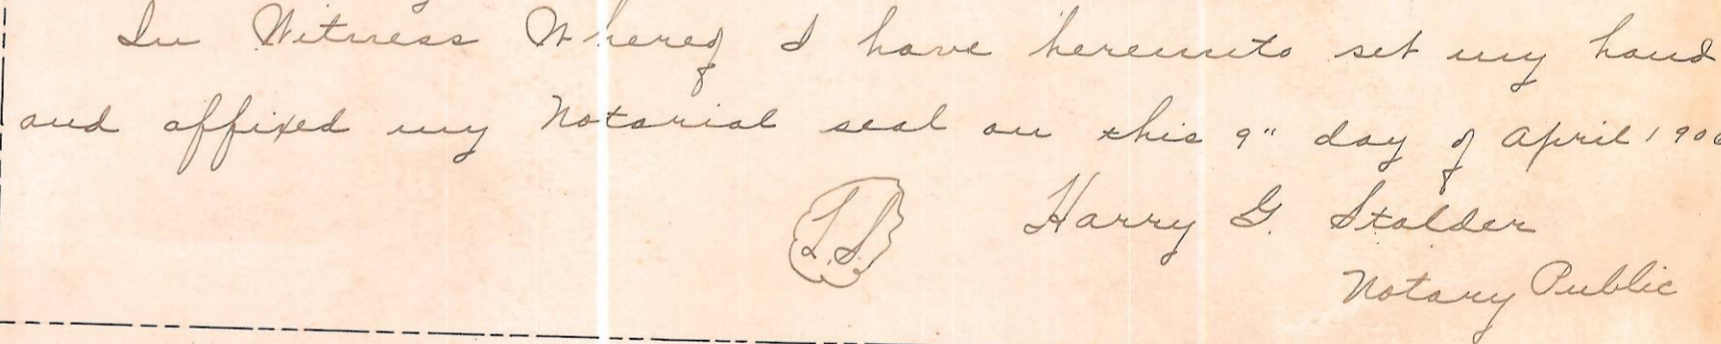 In Witness Whereof I have hereunto set my hand
and affixed my Notarial seal on this 9" day of April 1906
L.S.
Harry G. Stalder
Notary Public